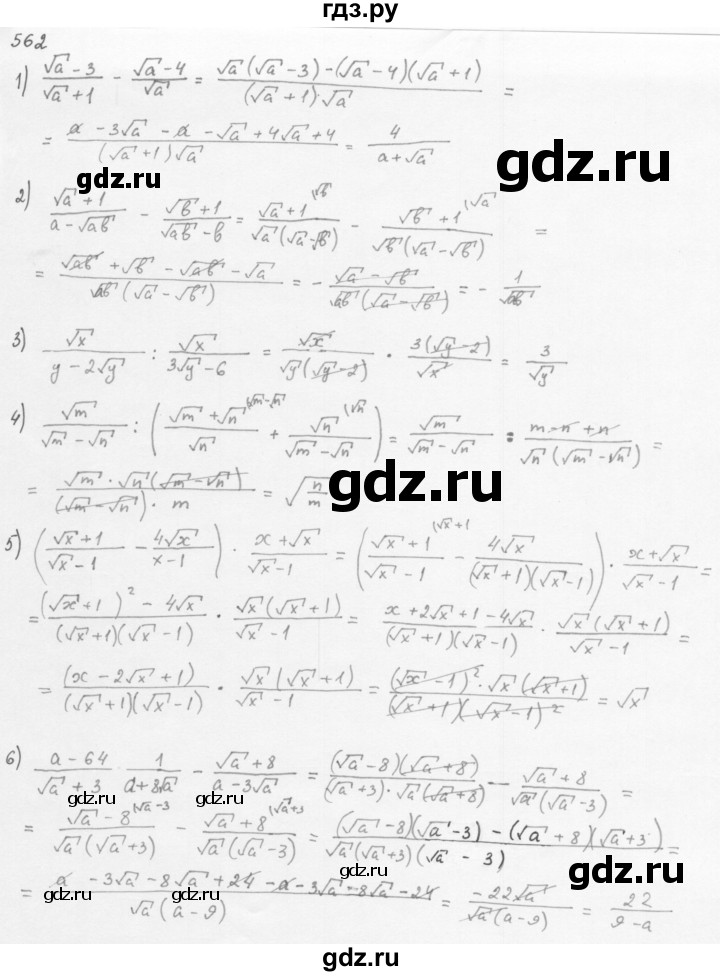 гдз.ру
562
1) (√a - 3)/(√a + 1) - (√a - 4)/√a = (√a(√a - 3) - (√a - 4)(√a + 1))/((√a + 1)·√a) =
= (a - 3√a - a - √a + 4√a + 4)/((√a + 1)√a) = 4/(a + √a)
gdz.ru
gdz.ru
2) (√a + 1)/(a - √ab) - (√b + 1)/(√ab - b) = (√a + 1)/(√a(√a - √b)) (√b - (√b + 1)/(√b(√a - √b)) (√a =
= (√ab + √b - √ab - √a)/(√ab(√a - √b)) = - (√a - √b)/(√ab(√a - √b)) = - 1/√ab
3) √x/(y - 2√y) : √x/(3√y - 6) = √x/(√y(√y - 2)) · 3(√y - 2)/√x = 3/√y
4) √m/(√m - √n) : ((√m + √n)/√n (√m - √n + √n/(√m - √n) (√n) = √m/(√m - √n) : (m - n + n)/(√n(√m - √n)) =
= (√m · √n(√m - √n))/((√m - √n) · m) = √(n/m)
gdz.ru
5) ((√x + 1)/(√x - 1) - 4√x/(x - 1)) · (x + √x)/(√x - 1) = ((√x + 1)/(√x - 1) (√x + 1 - 4√x/((√x + 1)(√x - 1))) · (x + √x)/(√x - 1) =
= ((√x + 1)² - 4√x)/((√x + 1)(√x - 1)) · √x(√x + 1)/(√x - 1) = (x + 2√x + 1 - 4√x)/((√x + 1)(√x - 1)) · √x(√x + 1)/(√x - 1) =
= (x - 2√x + 1)/((√x + 1)(√x - 1)) · √x(√x + 1)/(√x - 1) = ((√x - 1)² · √x(√x + 1))/((√x + 1)(√x - 1)²) = √x
6) (a - 64)/(√a + 3) · 1/(a + 8√a) - (√a + 8)/(a - 3√a) = (√a - 8)(√a + 8)/((√a + 3)·√a(√a + 8)) - (√a + 8)/(√a(√a - 3)) =
gdz.ru
gdz.ru
= (√a - 8)/(√a(√a + 3)) (√a - 3 - (√a + 8)/(√a(√a - 3)) (√a + 3 = ((√a - 8)(√a - 3) - (√a + 8)(√a + 3))/(√a(√a + 3)(√a - 3)) =
= (a - 3√a - 8√a + 24 - a - 3√a - 8√a - 24)/(√a(a - 9)) = -22√a/(√a(a - 9)) = 22/(9 - a)
gdz.ru
gdz.ru
gdz.ru